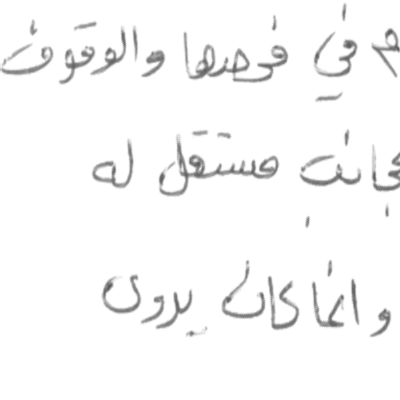 م في فحصها والوقوف
جانب مستقل له
وانما كان يرون